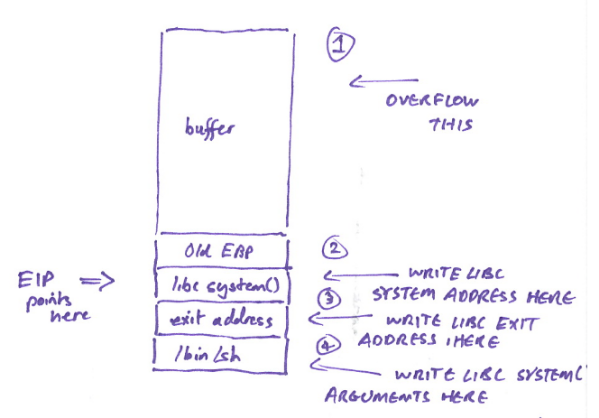 ①
OVERFLOW
THIS
buffer
Old EBP
②
EIP
points
here
libc system()
WRITE LIBC
SYSTEM ADDRESS HERE
③
exit address
WRITE LIBC EXIT
ADDRESS HERE
④
/bin/sh
WRITE LIBC SYSTEM(
ARGUMENTS HERE